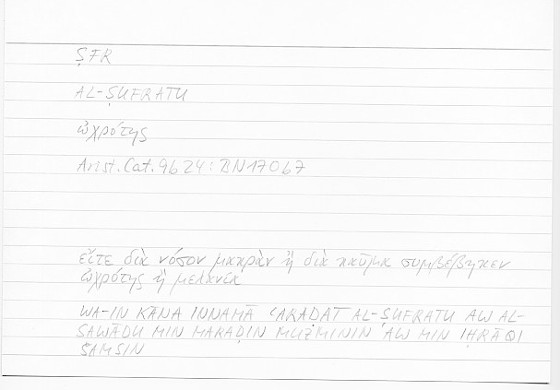 ṢFR
AL-ṢUFRATU
ὠχρότης
Arist. Cat. 9b24 : BN170b7
εἴτε διὰ νόσον μακρὰν ἢ διὰ καῦμα συμβέβηκεν
ὠχρότης ἢ μελανία
WA-IN KĀNA INNAMĀ ʿARAḌAT AL-ṢUFRATU AW AL-
SAWĀDU MIN MARAḌIN MUZMININ AW MIN IḤRĀQI
ŠAMSIN